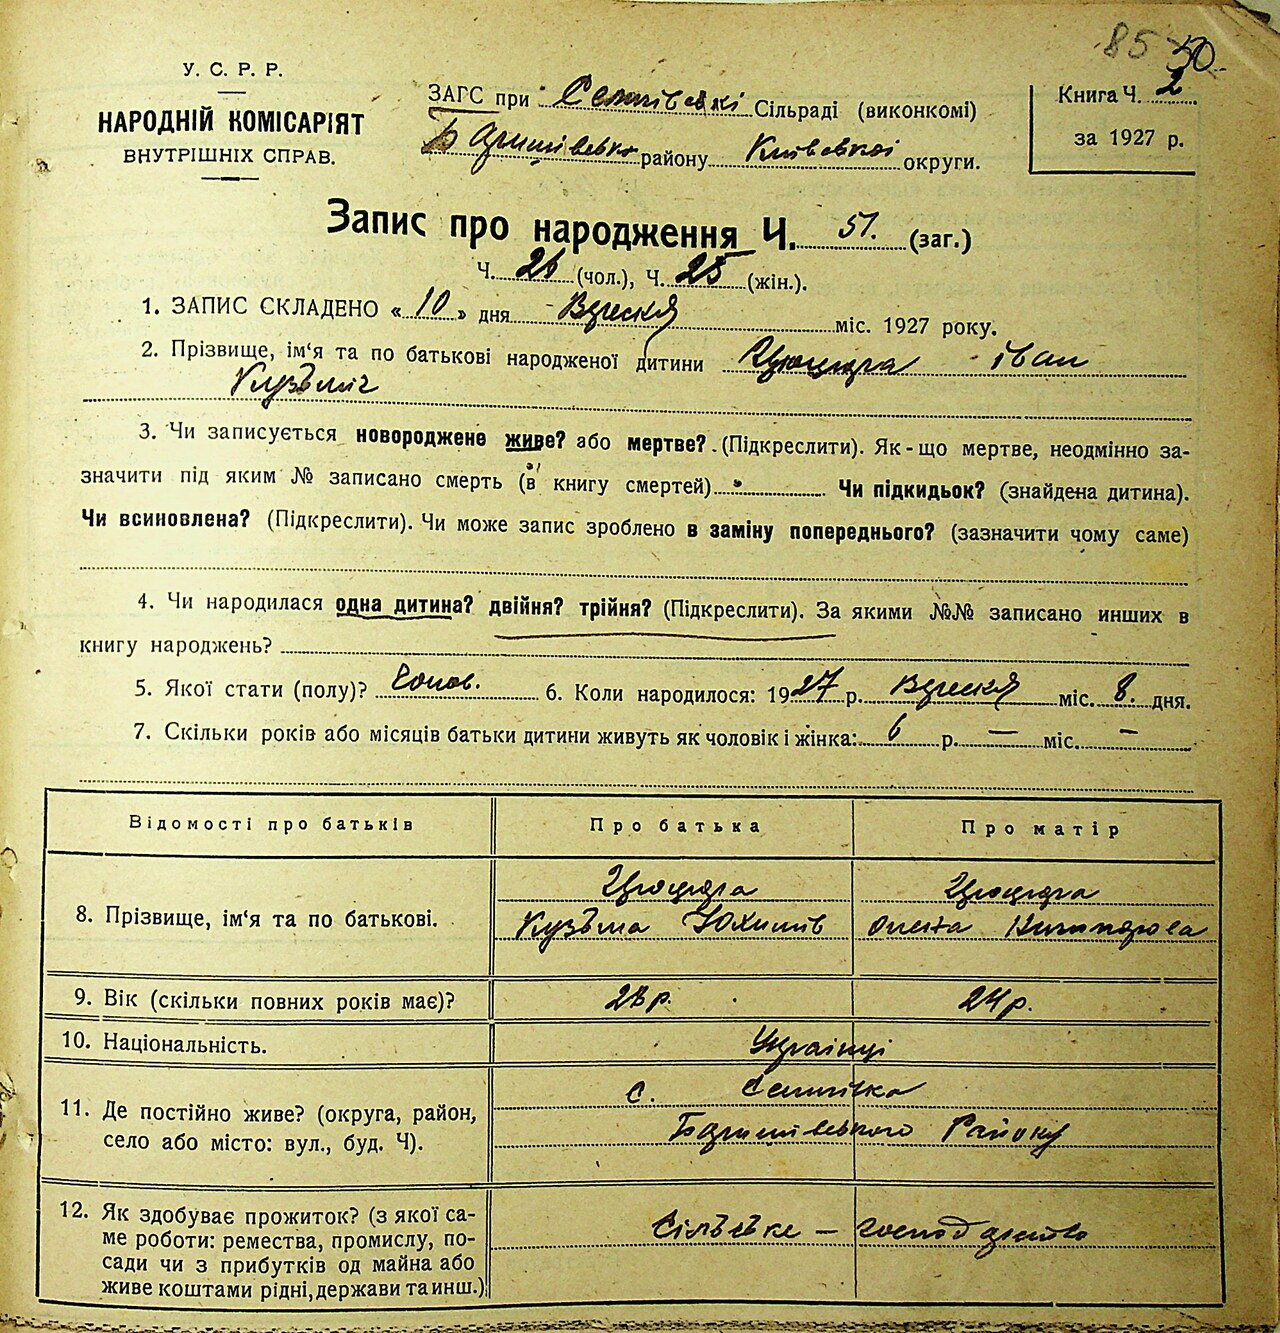 85 50.
У. С. Р. Р.
НАРОДНІЙ КОМІСАРІЯТ
ВНУТРІШНІХ СПРАВ.
ЗАГС при Семпівські Сільраді (виконкомі)
Баришівсько району Київської округи.
Книга Ч. 2
за 1927 р.
Запис про народження Ч. 51. (заг.)
Ч. 26 (чол.), Ч. 25 (жін.).
1. ЗАПИС СКЛАДЕНО « 10 » дня Вресня міс. 1927 року.
2. Прізвище, ім‘я та по батькові народженої дитини Цюцюра Іван
Кузьміч
3. Чи записується новороджене живе? або мертве? (Підкреслити). Як-що мертве, неодмінно за-
значити під яким № записано смерть (в книгу смертей) Чи підкидьок? (знайдена дитина).
Чи всиновлена? (Підкреслити). Чи може запис зроблено в заміну попереднього? (зазначити чому саме)
4. Чи народилася одна дитина? двійня? трійня? (Підкреслити). За якими №№ записано инших в
книгу народжень?
5. Якої стати (полу)? 6. Коли народилося: 1927 р. Вресня міс. 8. дня.
7. Скільки років або місяців батьки дитини живуть як чоловік і жінка: 6 р. — міс. —
Відомості про батьків Про батька Про матір
8. Прізвище, ім‘я та по батькові.
Цюцюра Цюцюра
Кузьма Юхимів Олена
9. Вік (скільки повних років має)? 28 р. 24 р.
10. Національність. Українці
11. Де постійно живе? (округа, район,
село або місто: вул., буд. Ч).
с. Семпівка
Баришівського Району
12. Як здобуває прожиток? (з якої са-
ме роботи: ремества, промислу, по-
сади чи з прибутків од майна або
живе коштами рідні, держави та инш.)
Сільське — господарство